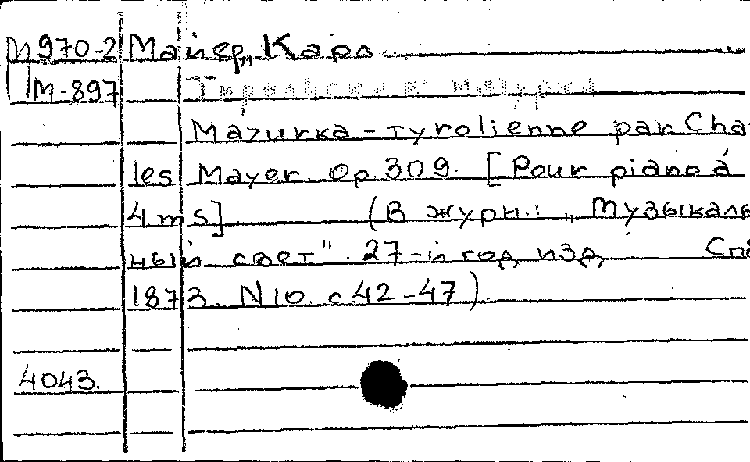 П970-2 Майер, Карл
М-897 Тирольская мазурка
Mazurka-tyrolienne par Char
les Mayer. Op. 309. [Pour piano à
4 ms] (В журн.: „Музыкаль
ный свет" 27-й год изд. Спб
1873. N10. с 42-47)
4043.